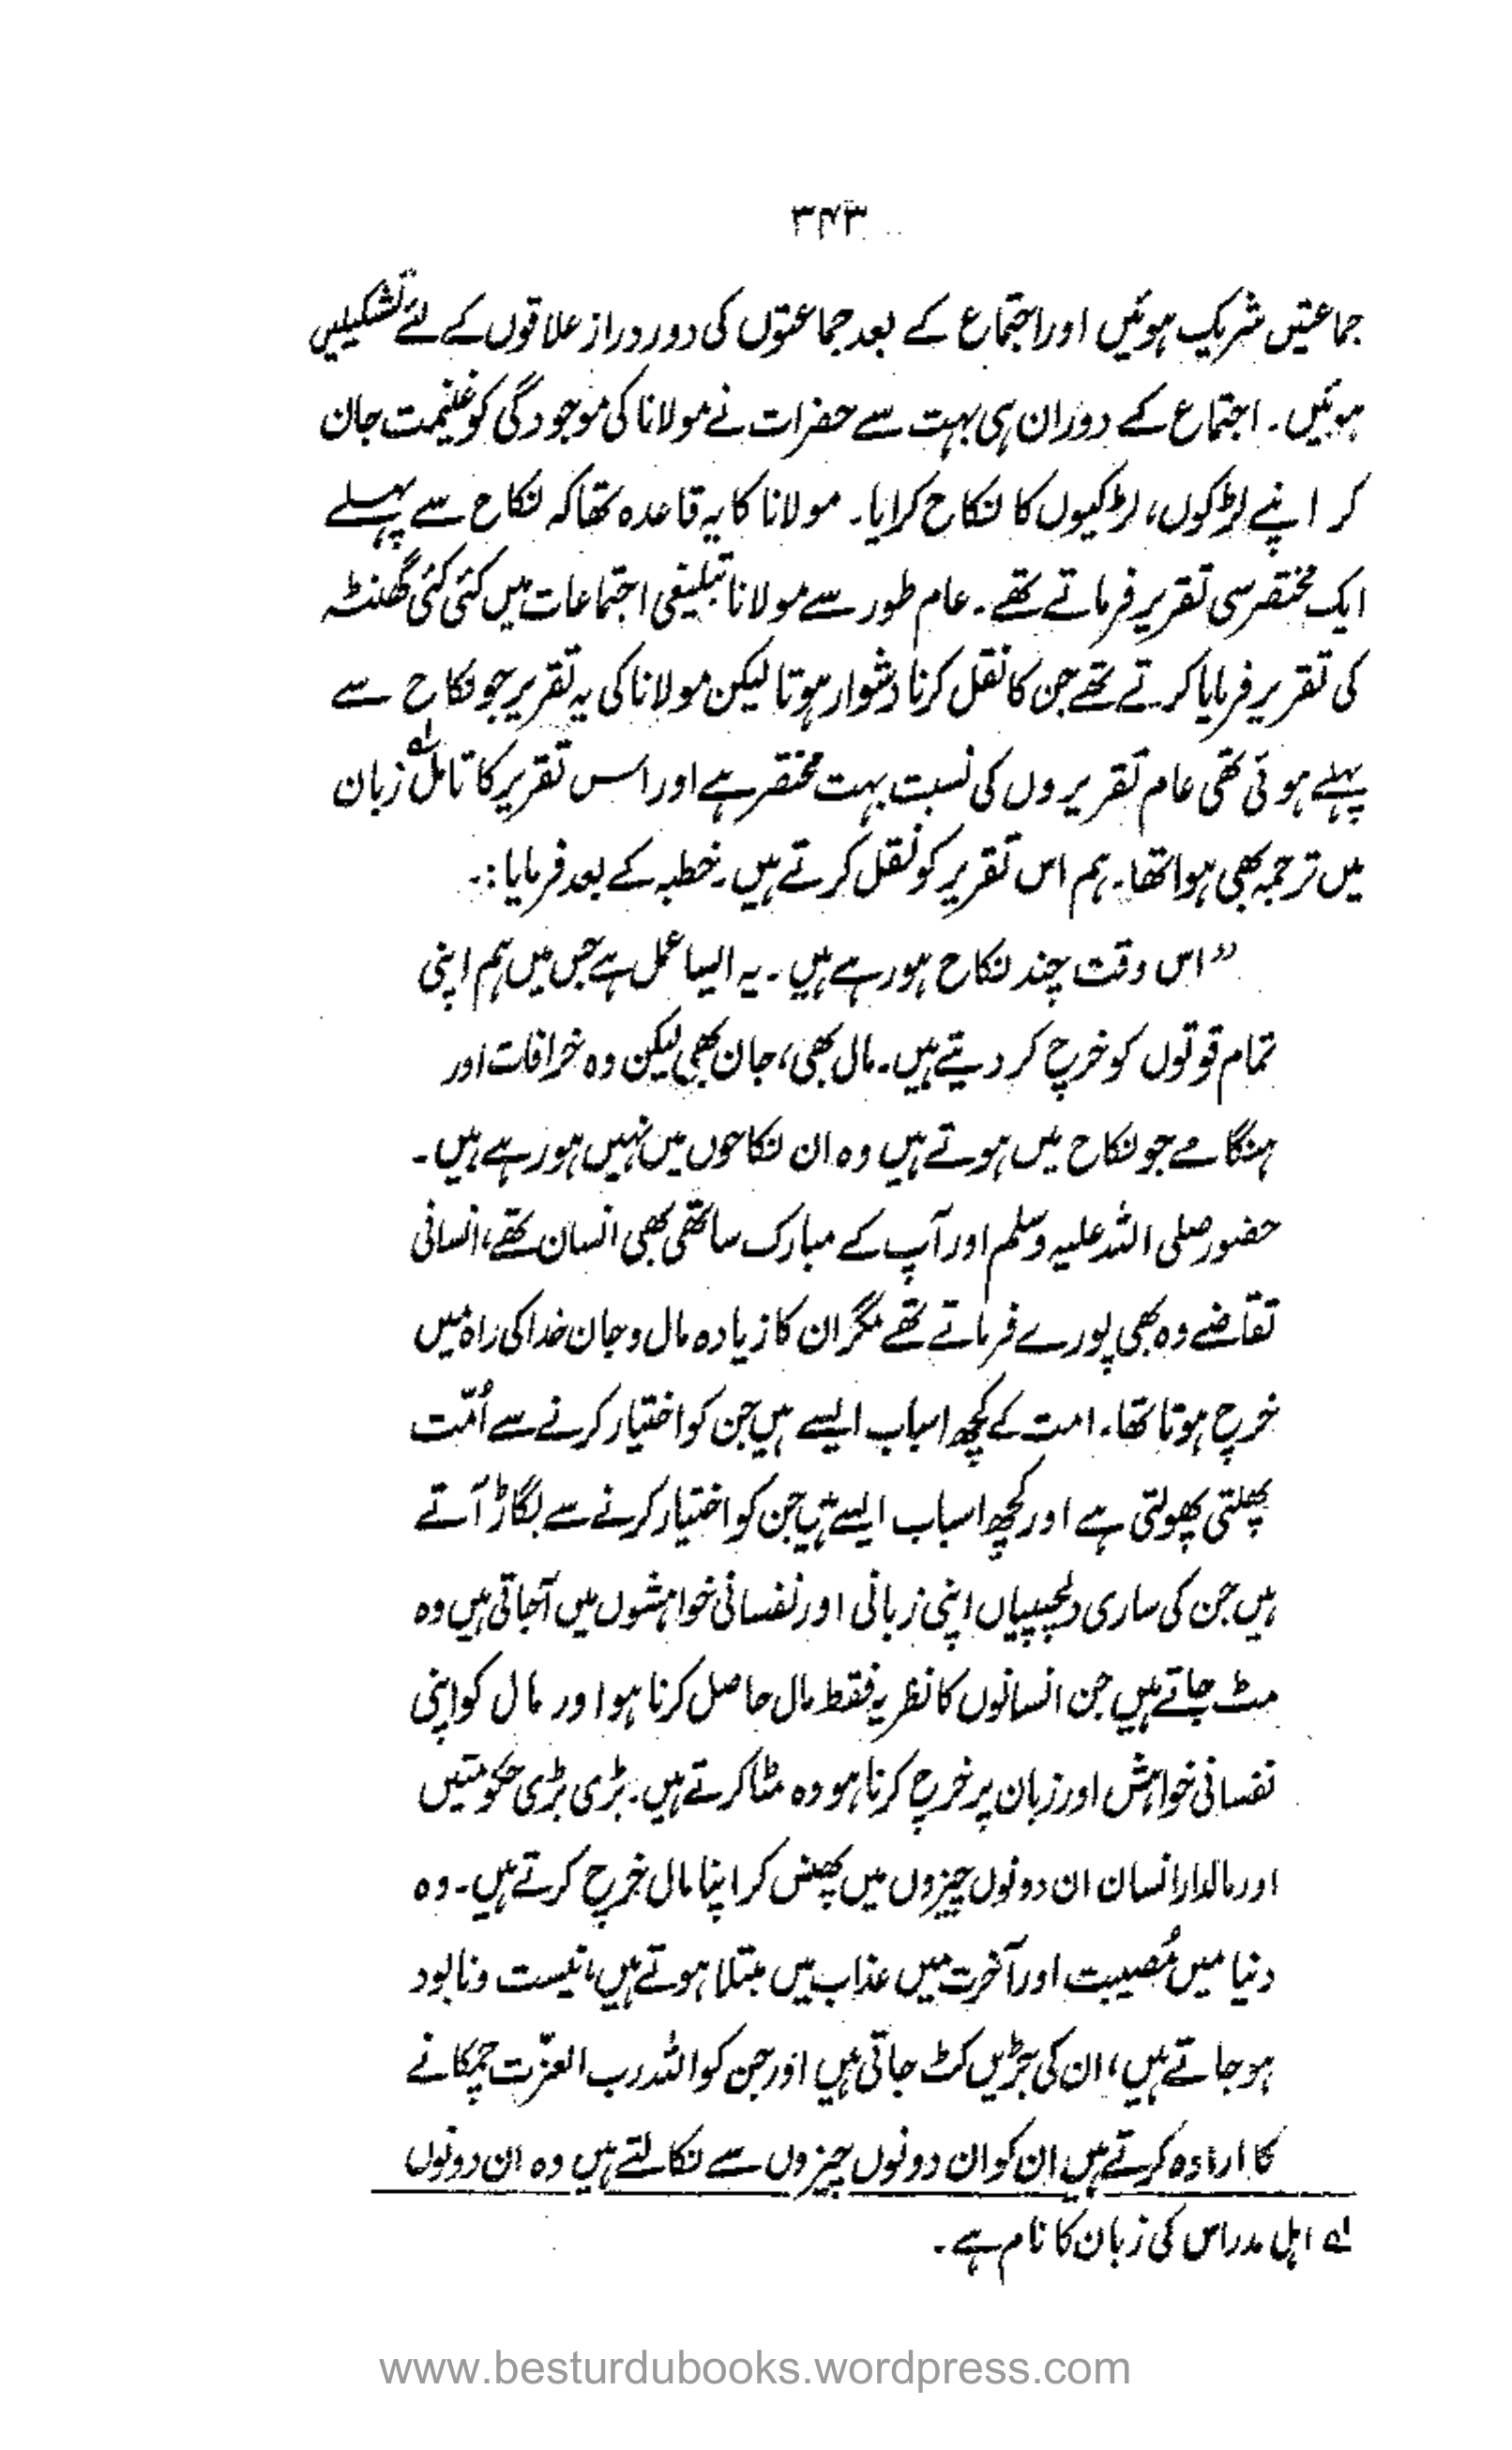 ۳۴۳
جماعتیں شریک ہوئیں اور اجتماع کے بعد جماعتوں کی دور دراز علاقوں کے لئے تشکیلیں
ہوئیں۔ اجتماع کے دوران ہی بہت سے حضرات نے مولانا کی موجودگی کو غنیمت جان
کر اپنے لڑکوں، لڑکیوں کا نکاح کرایا۔ مولانا کا یہ قاعدہ تھا کہ نکاح سے پہلے
ایک مختصر سی تقریر فرماتے تھے۔ عام طور سے مولانا تبلیغی اجتماعات میں کئی کئی گھنٹہ
کی تقریر فرمایا کرتے تھے جن کا نقل کرنا دشوار ہوتا لیکن مولانا کی یہ تقریر جو نکاح سے
پہلے ہوئی تھی عام تقریروں کی نسبت بہت مختصر ہے اور اس تقریر کا تامل لہ زبان
میں ترجمہ بھی ہوا تھا۔ ہم اس تقریر کو نقل کرتے ہیں۔ خطبہ کے بعد فرمایا:۔
”اس وقت چند نکاح ہو رہے ہیں۔ یہ ایسا عمل ہے جس میں ہم اپنی
تمام قوتوں کو خرچ کر دیتے ہیں۔ مال بھی، جان بھی لیکن وہ خرافات اور
ہنگامے جو نکاح میں ہوتے ہیں وہ ان نکاحوں میں نہیں ہو رہے ہیں۔
حضور صلی اللہ علیہ وسلم اور آپ کے مبارک ساتھی بھی انسان تھے، انسانی
تقاضے وہ بھی پورے فرماتے تھے مگر ان کا زیادہ مال و جان خدا کی راہ میں
خرچ ہوتا تھا۔ امت کے کچھ اسباب ایسے ہیں جن کو اختیار کرنے سے اُمّت
پھلتی پھولتی ہے اور کچھ اسباب ایسے ہیں جن کو اختیار کرنے سے بگاڑ آتے
ہیں جن کی ساری دلچسپیاں اپنی زبانی اور نفسانی خواہشوں میں آجاتی ہیں وہ
مٹ جاتے ہیں جن انسانوں کا نظریہ فقط مال حاصل کرنا ہو اور مال کو اپنی
نفسانی خواہش اور زبان پر خرچ کرنا ہو وہ مٹا کرتے ہیں۔ بڑی بڑی حکومتیں
اور مالدار انسان ان دونوں چیزوں میں پھنس کر اپنا مال خرچ کرتے ہیں۔ وہ
دنیا میں مُصیبت اور آخرت میں عذاب میں مبتلا ہوتے ہیں، نیست و نابود
ہو جاتے ہیں، ان کی جڑیں کٹ جاتی ہیں اور جن کو اللہ رب العزّت چمکانے
کا ارادہ کرتے ہیں ان کو ان دونوں چیزوں سے نکالتے ہیں وہ ان دونوں
لہ اہل مدراس کی زبان کا نام ہے۔
www.besturdubooks.wordpress.com